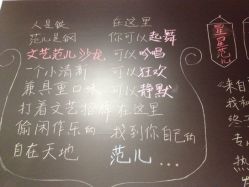 人是饭 在这里
范儿是钢 你可以起舞
文艺范儿沙龙 可以吟唱
一个小清新 可以狂欢
兼具重口味 可以静默
打着文艺招牌 在这里
偷闲作乐的 找到你自己的
自在天地 范儿...
来自
我和
终
专
执